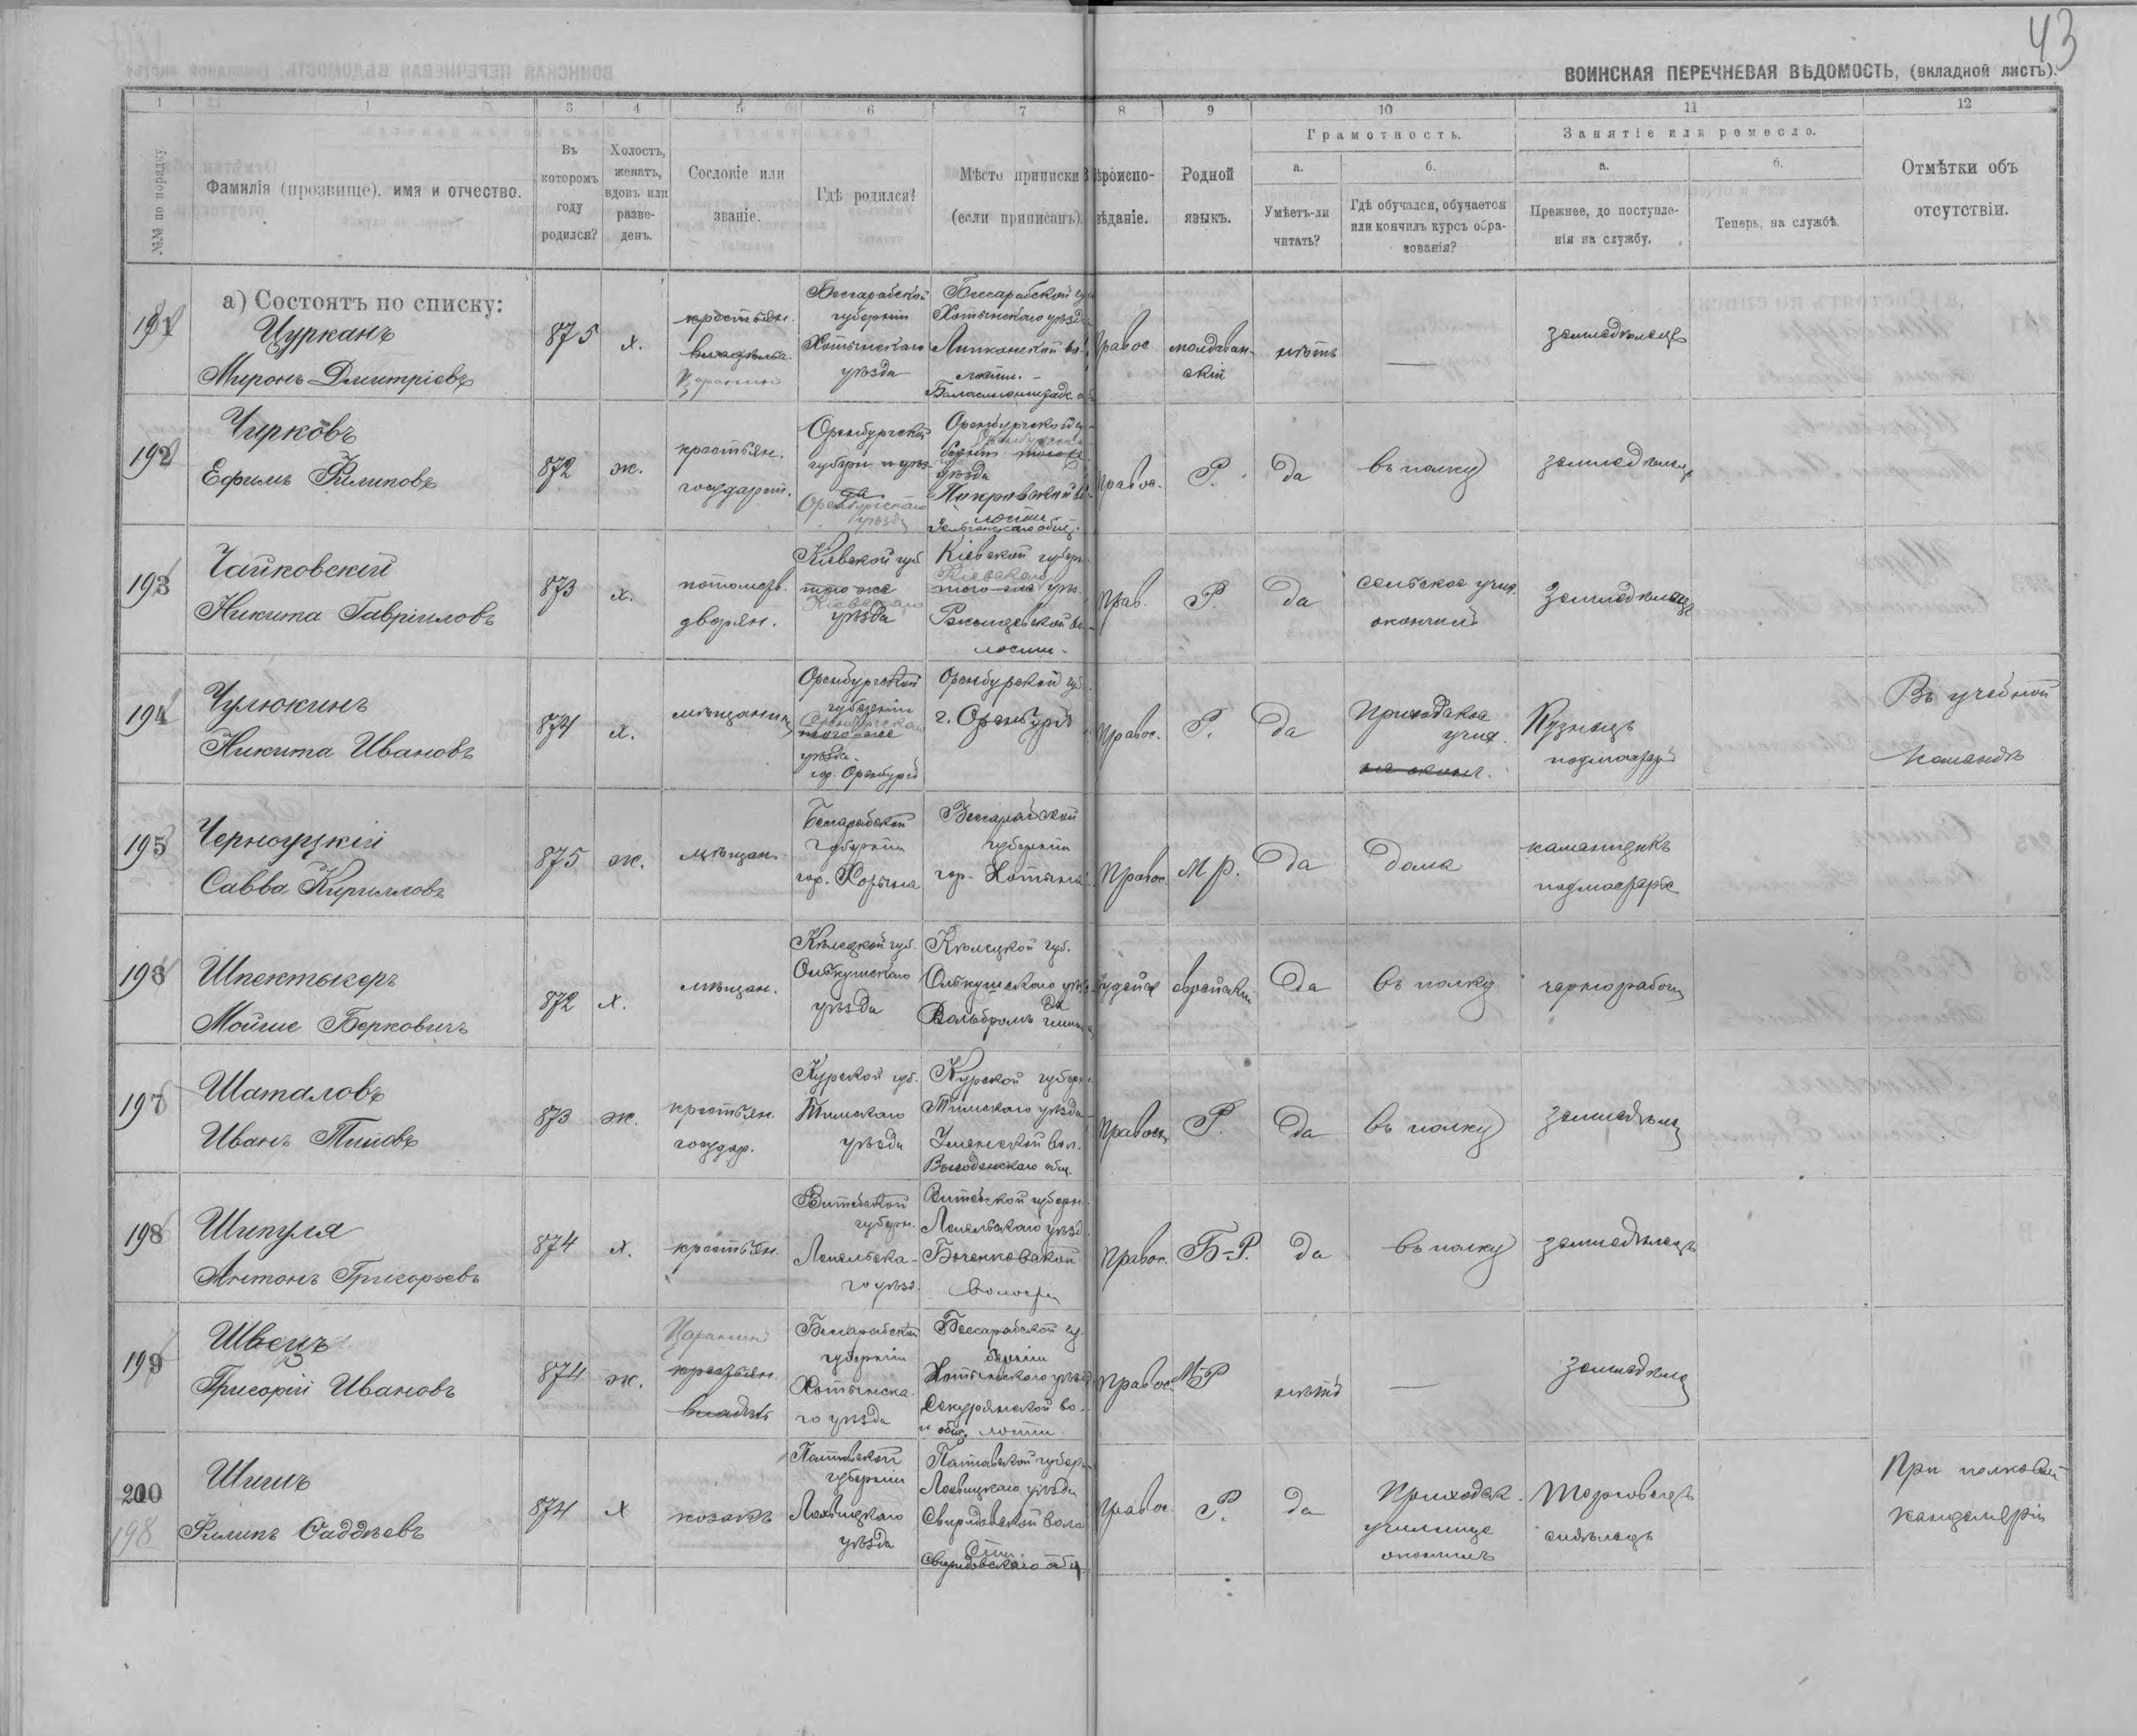 43
ВОИНСКАЯ ПЕРЕЧНЕВАЯ ВѢДОМОСТЬ, (вкладной листъ).
1 1 3 4 5 6 7 8 9 10 11 12
№№ по порядку.
Фамилія (прозвище), имя и отчество.
Въ которомъ году родился?
Холостъ, женатъ, вдовъ или разведенъ.
Сословіе или званіе.
Гдѣ родился?
Мѣсто приписки (если приписанъ).
Вѣроисповѣданіе.
Родной языкъ.
Грамотность.
а. Умѣетъ-ли читать?
б. Гдѣ обучался, обучается или кончилъ курсъ образованія?
Занятіе или ремесло.
а. Прежнее, до поступленія на службу.
б. Теперь, на службѣ.
Отмѣтки объ отсутствіи.
а) Состоятъ по списку:
191 Цурканъ Миронъ Дмитріевъ
875 х. крестьян. владѣльч. Царанинъ
Бессарабской губерніи Хотинскаго уѣзда
Бессарабской Хотинскаго уѣзда Липканской волости
Правос молдаванскій нѣтъ — земледѣлецъ
192 Чирковъ Ефимъ Филиповъ
872 ж. крестьян. государст.
Оренбургской губерн и уѣзда Оренбургскаго уѣзда
Оренбургской губерн того же уѣзда Покровской волости
Правос. Р. да въ полку земледѣлецъ
193 Чайковскій Никита Гавріиловъ
873 х. потомств. дворян.
Кіевской губ того же Кіевскаго уѣзда
Кіевской губерн Кіевскаго того же уѣз. волости
Прав. Р. да сельское учил. окончилъ Земледѣлецъ
194 Чулюкинъ Никита Ивановъ
874 х. мѣщанинъ
Оренбургской губерніи Оренбургскаго того же уѣзда гор. Оренбургъ
Оренбурской губ г. Оренбургъ
Правос. Р. да Приходское учил. не оконч. Кузнецъ подмастерье
Въ учебной командѣ
195 Черноуцкій Савва Кирилловъ
875 ж. мѣщан.
Бессарабской губерніи гор. Хотина
Бессарабской губерніи гор. Хотина
Правос. М р. да дома каменщикъ подмастерье
196 Шпектыкеръ Мойше Берковичъ
872 х. мѣщан.
Кѣлецкой губ. Олькушскаго уѣзда
Кѣлецкой губ. Олькушскаго уѣзда Вольбромъ гмина
Іудейск еврейскій да въ полку чернорабоч
197 Шаталовъ Иванъ Титовъ
873 ж. крестьян. государ.
Курской губ. Тимскаго уѣзда
Курской губерн. Тимскаго уѣзда вол.
Правосл Р. да въ полку земледѣлец
198 Шипуля Антонъ Григорьевъ
874 х. крестьян.
Витебской губерн. Лепельскаго уѣзд.
Витебской губерн. Лепельскаго уѣзд. Боченковской волости
Правос. Б-Р. да въ полку земледѣлецъ
199 Швецъ Григорій Ивановъ
874 ж. Царанинъ крестьян. владѣль
Бессарабской губерніи Хотинскаго уѣзда
Бессарабской губерніи Хотинскаго уѣзд Секурянской волости и общ.
Правос. М-Р нѣтъ — земледѣлец
200 198 Шишъ Филипъ Фаддѣевъ
874 х козакъ
Полтавской губерніи Лохвицкаго уѣзда
Полтавской губерн Лохвицкаго уѣзда Свиридовской волости Свиридовскаго общ
Правос. Р. да Приходск. училище окончилъ Торговецъ сидѣлецъ
При полковой канцеляріи